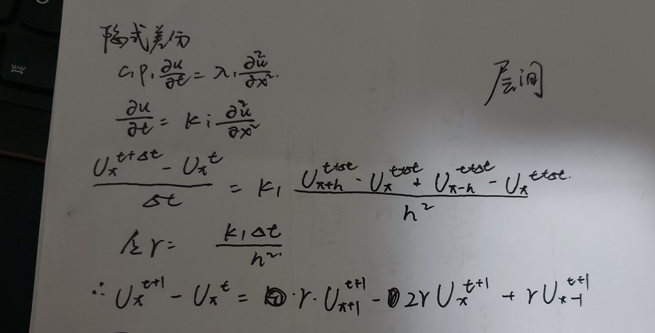 隐式差分
c₁ρ₁ ∂u/∂t = λ₁ ∂²u/∂x²
层间
∂u/∂t = k_i ∂²u/∂x²
(U_x^{t+Δt} - U_x^t)/Δt = k₁ (U_{x+h}^{t+Δt} - U_x^{t+Δt} + U_{x-h}^{t+Δt} - U_x^{t+Δt})/h²
令r = k₁Δt/h²
∴ U_x^{t+1} - U_x^t = r·U_{x+1}^{t+1} - 2rU_x^{t+1} + rU_{x-1}^{t+1}